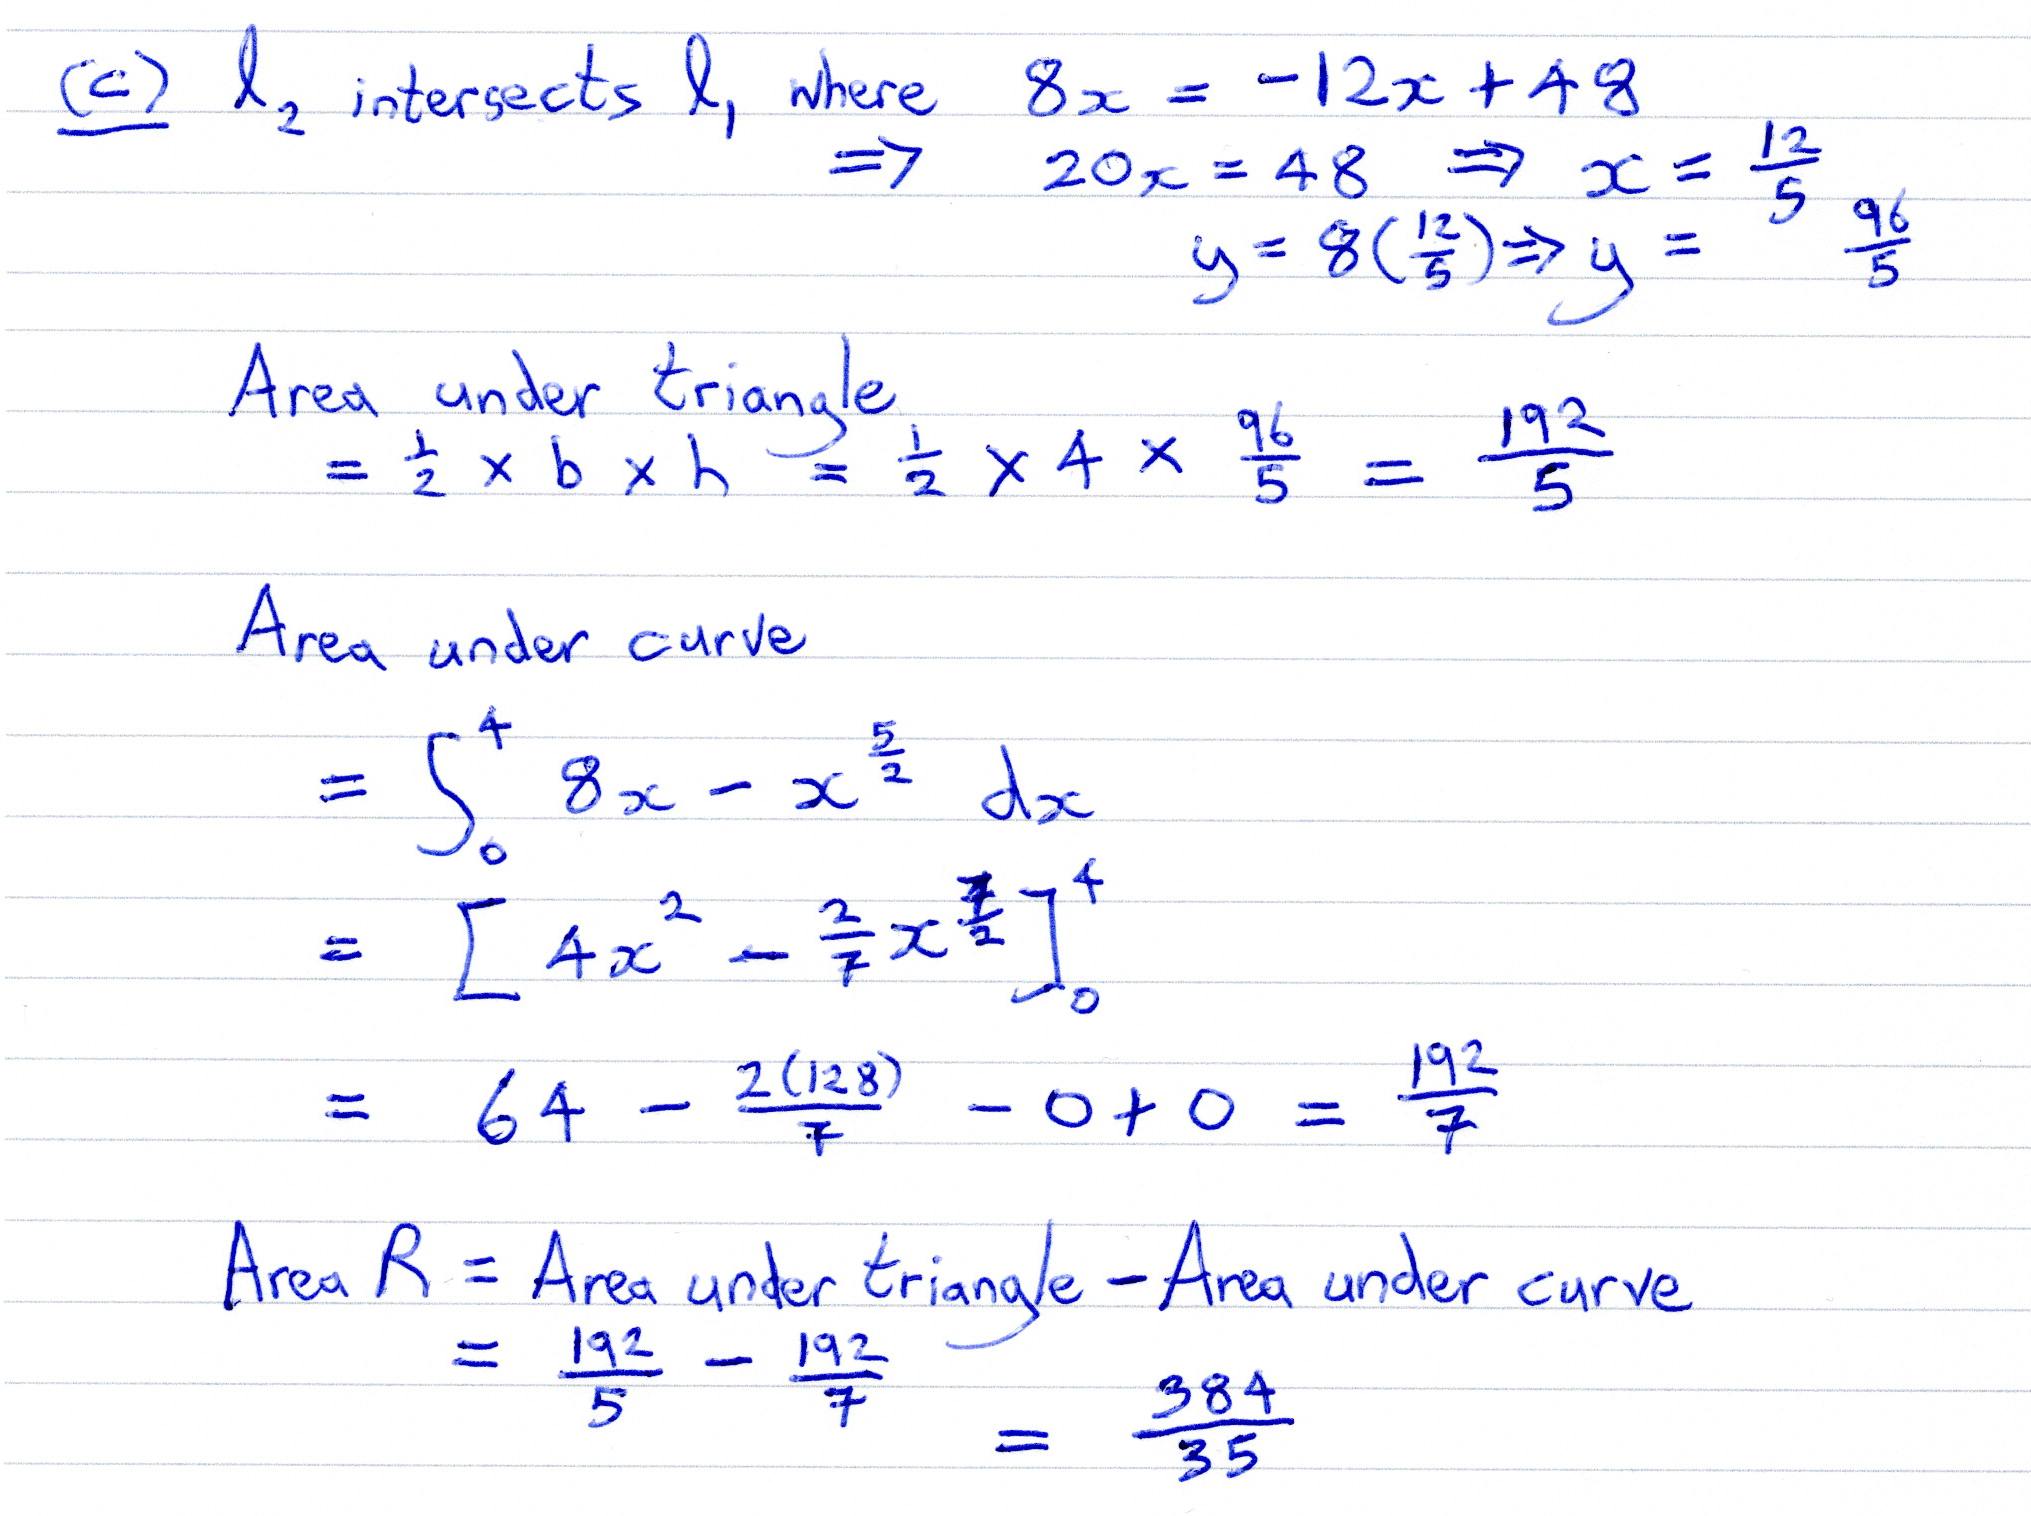 (c) l₂ intersects l₁ where 8x = -12x + 48
⇒ 20x = 48 ⇒ x = 12/5
y = 8(12/5) ⇒ y = 96/5
Area under triangle
= 1/2 × b × h = 1/2 × 4 × 96/5 = 192/5
Area under curve
= ∫₀⁴ 8x - x^(5/2) dx
= [4x² - 2/7 x^(7/2)]₀⁴
= 64 - 2(128)/7 - 0 + 0 = 192/7
Area R = Area under triangle - Area under curve
= 192/5 - 192/7
= 384/35